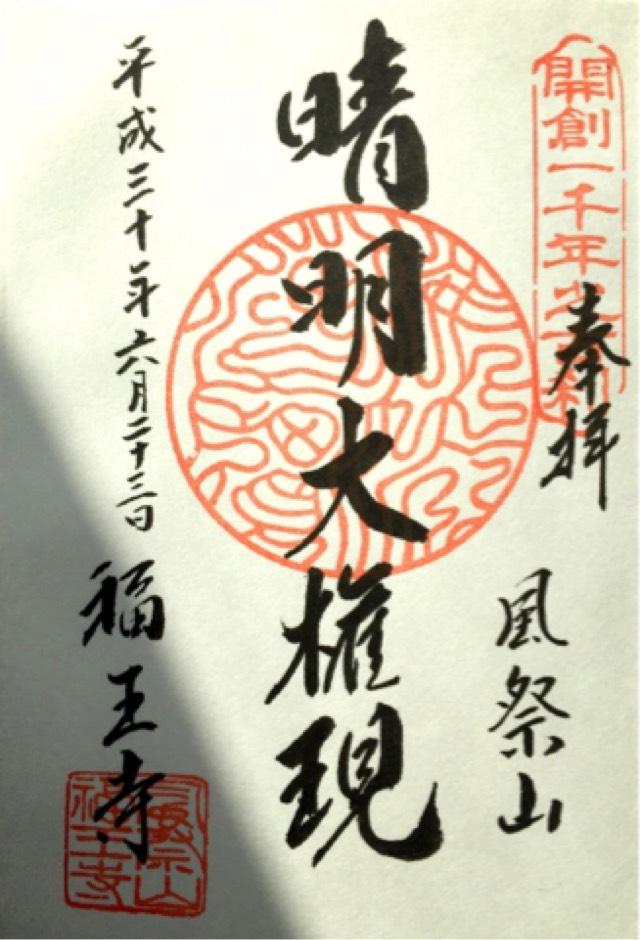 開創一千年
奉拝
風祭山
晴明大権現
平成三十年六月二十三日
福王寺
風祭山
福王寺